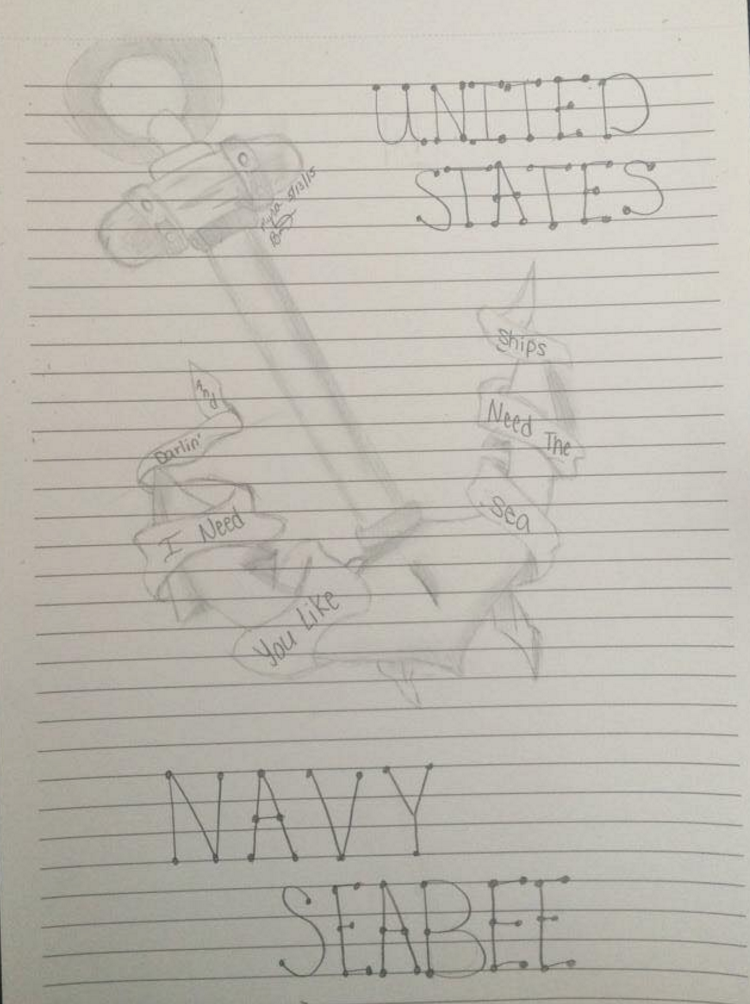 UNITED
STATES
5/13/15
And
Darlin'
I Need
You Like
Ships
Need The
Sea
NAVY
SEABEE